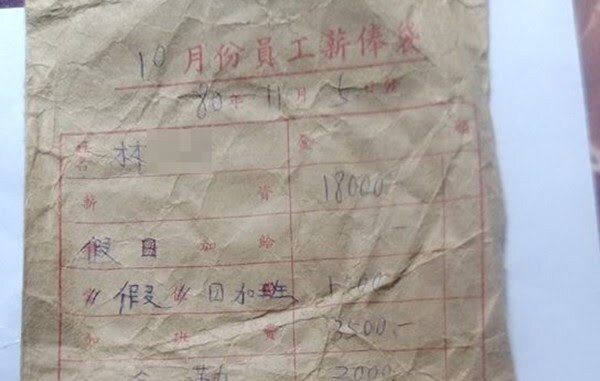 10月份員工薪俸袋
80年11月5日分
姓名 林
薪資 18000.-
假日加給 -
假日加班
加班費 3500.-
全勤 2000